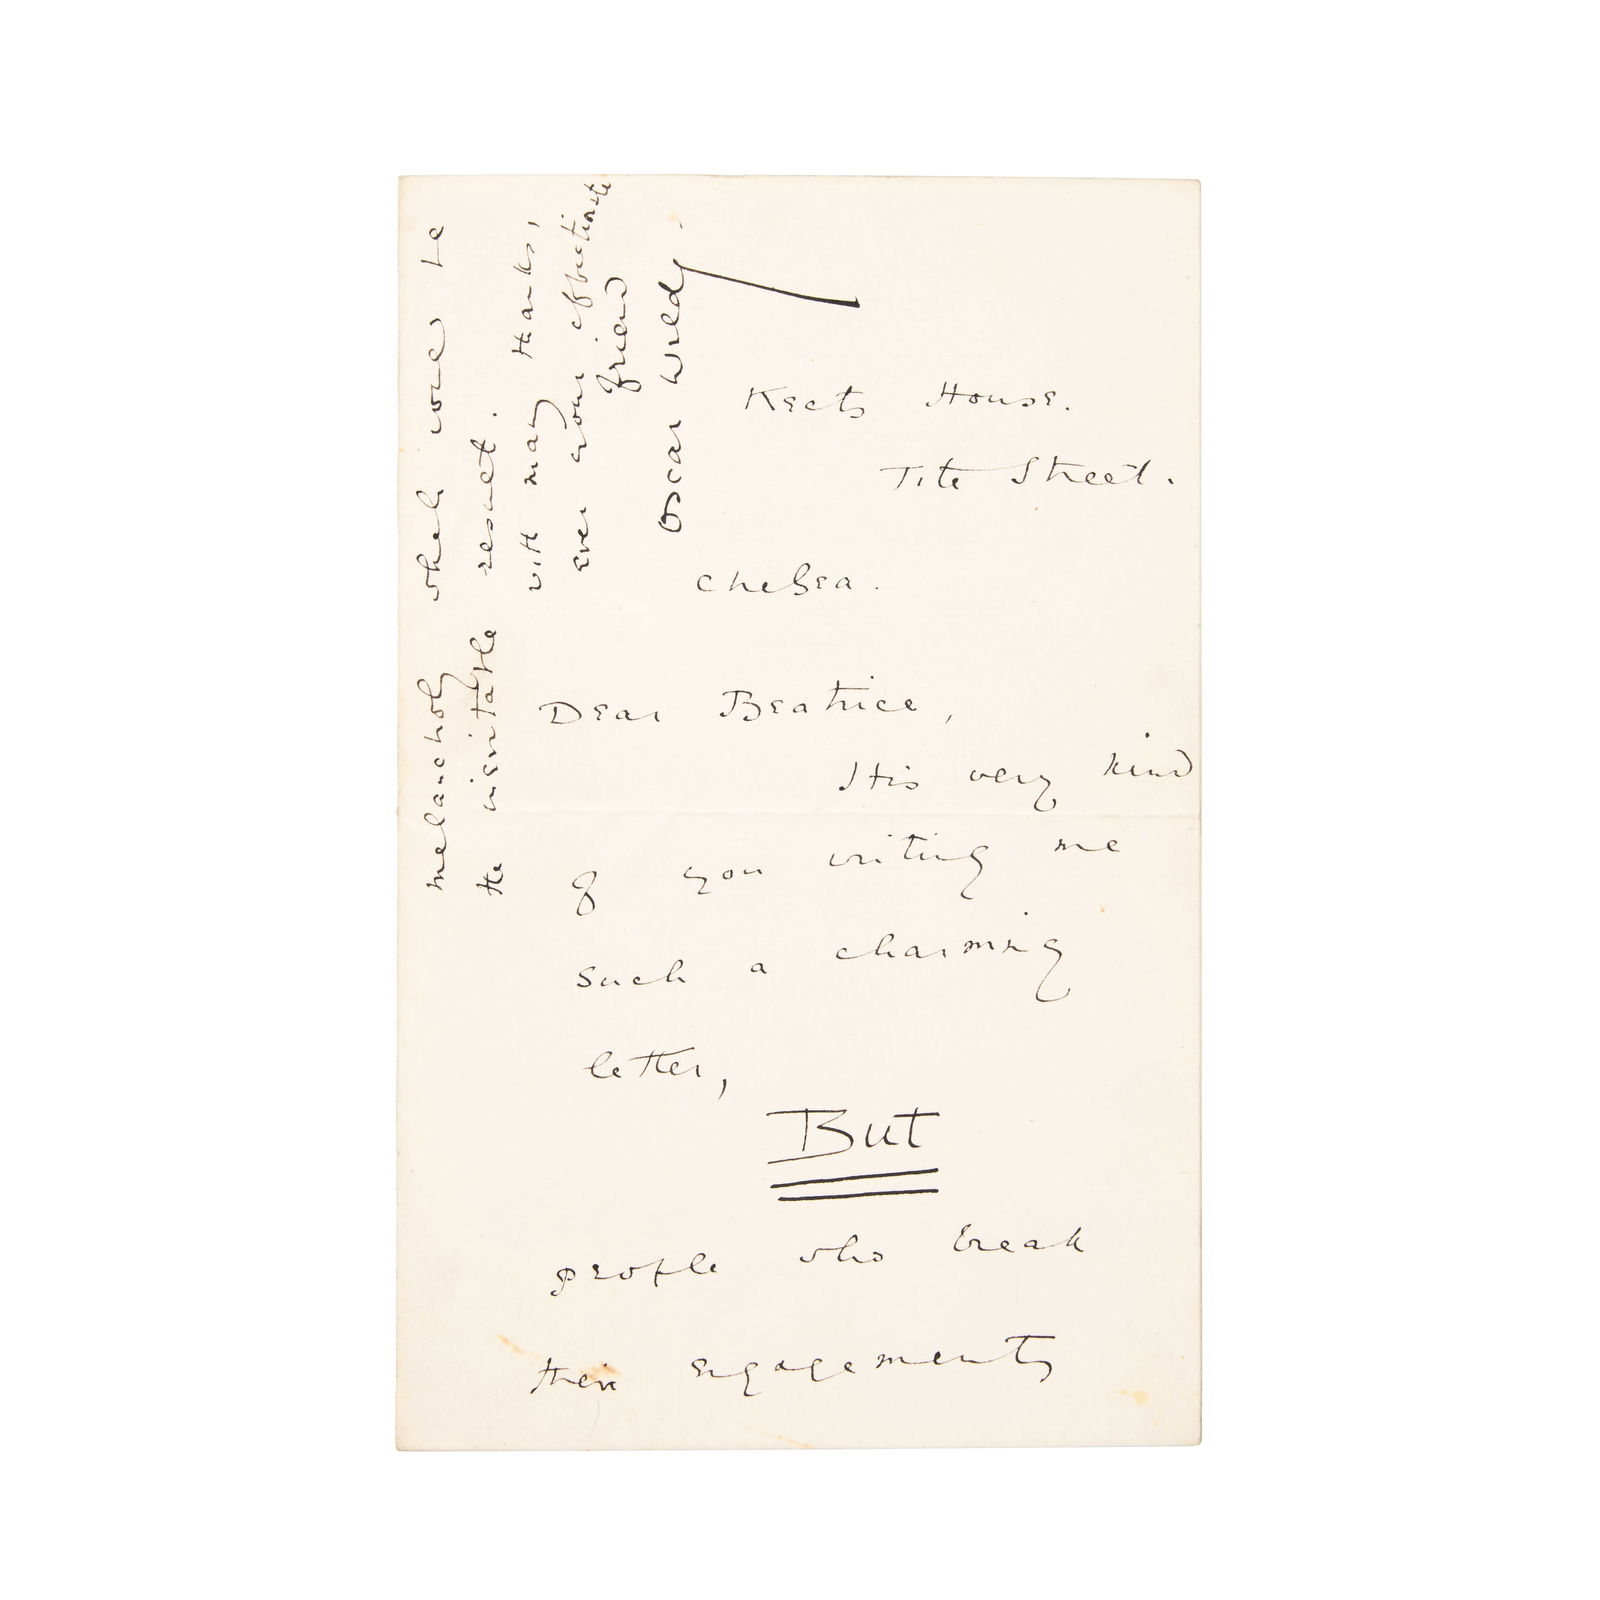 Keats House.
Tite Street.
Chelsea.
Dear Beatrice,
It is very kind
of you writing me
such a charming
letter,
But
people who break
their engagements
melancholy which would be
the inevitable result.
with many thanks,
ever your affectionate
friend
Oscar Wilde